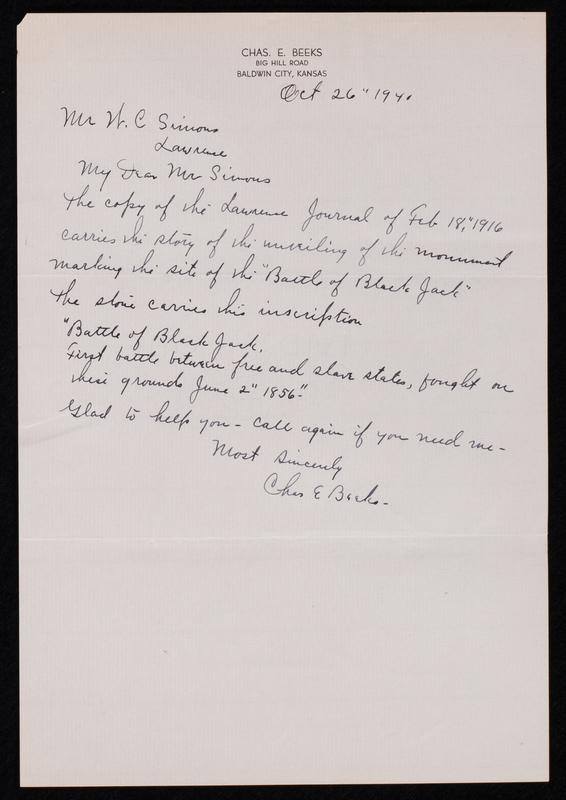 CHAS. E. BEEKS
BIG HILL ROAD
BALDWIN CITY, KANSAS
Oct 26" 1940
Mr W. C Simons
Lawrence
My Dear Mr Simons
The copy of the Lawrence Journal of Feb 18," 1916
carries the story of the unveiling of the monument
marking the site of the "Battle of Black Jack"
The stone carries this inscription
"Battle of Black Jack.
First battle between free and slave states, fought on
these grounds June 2" 1856"-
Glad to help you - Call again if you need me -
Most Sincerely
Chas E Beeks -